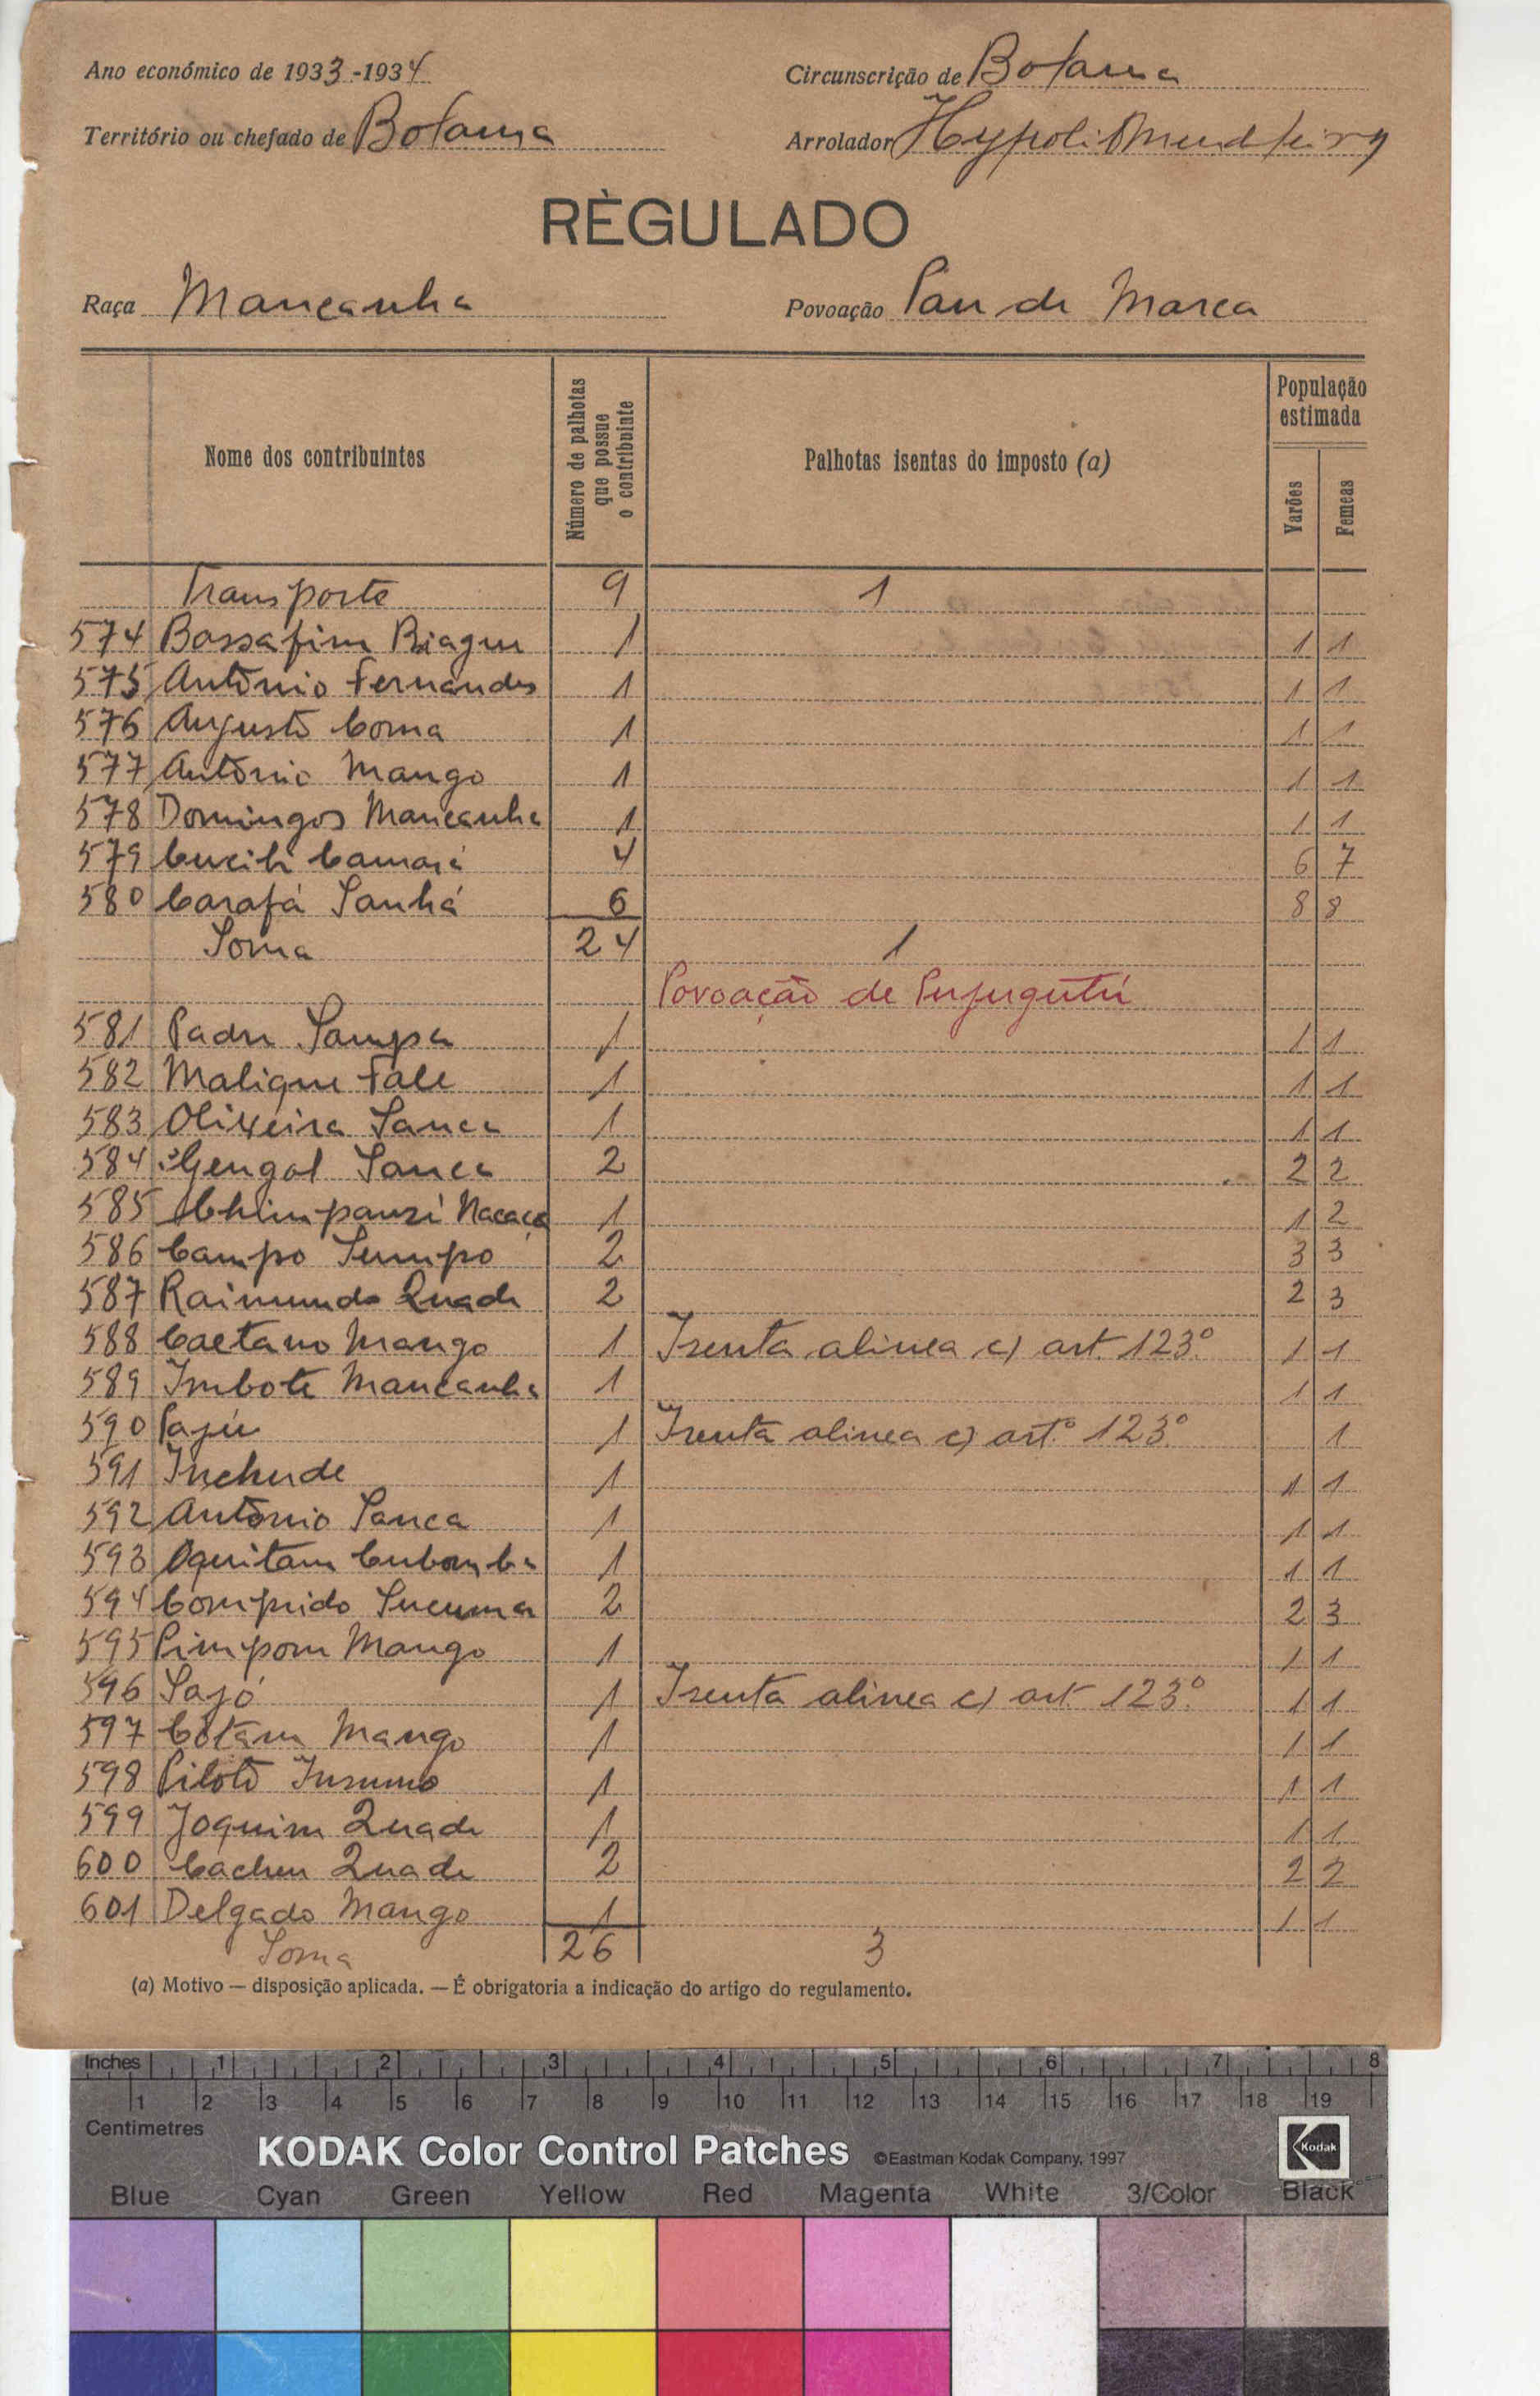 Ano económico de 1933-1934 Circunscrição de Bolama
Território ou chefado de Bolama Arrolador
RÈGULADO
Raça Mancanha Povoação Pau de Marca
Nome dos contribuintes
Número de palhotas que possue o contribuinte
Palhotas isentas do imposto (a)
População estimada
Varões Femeas
Transporte 9 1
574 Bossafim Biague 1 1 1
575 António Fernandes 1 1 1
576 Augusto Coma 1 1 1
577 António Mango 1 1 1
578 Domingos Mancanha 1 1 1
579 Camará 4 6 7
580 Carafá Sanhá 6 8 8
Soma 24 1
Povoação de
581 Padre Sampa 1 1 1
582 Malique Fale 1 1 1
583 Oliveira Sanca 1 1 1
584 Gengal Sanca 2 2 2
585 1 1 2
586 Campo 2 3 3
587 Raimundo Quade 2 2 3
588 Caetano Mango 1 Isenta alinea c) art. 123.º 1 1
589 Imbote Mancanha 1 1 1
590 Pajú 1 Isenta alinea c) artº 123.º 1
591 Inchude 1 1 1
592 António Sanca 1 1 1
593 1 1 1
594 Comprido 2 2 3
595 Pimpom Mango 1 1 1
596 Sajó 1 Isenta alinea c) art. 123.º 1 1
597 Cotam Mango 1 1 1
598 Piloto 1 1 1
599 Joquim Quade 1 1 1
600 Cacheu Quade 2 2 2
601 Delgado Mango 1 1 1
Soma 26 3
(a) Motivo — disposição aplicada. — É obrigatoria a indicação do artigo do regulamento.
Inches 1 2 3 4 5 6 7 8
1 2 3 4 5 6 7 8 9 10 11 12 13 14 15 16 17 18 19
Centimetres
KODAK Color Control Patches ©Eastman Kodak Company, 1997 Kodak
Blue Cyan Green Yellow Red Magenta White 3/Color Black